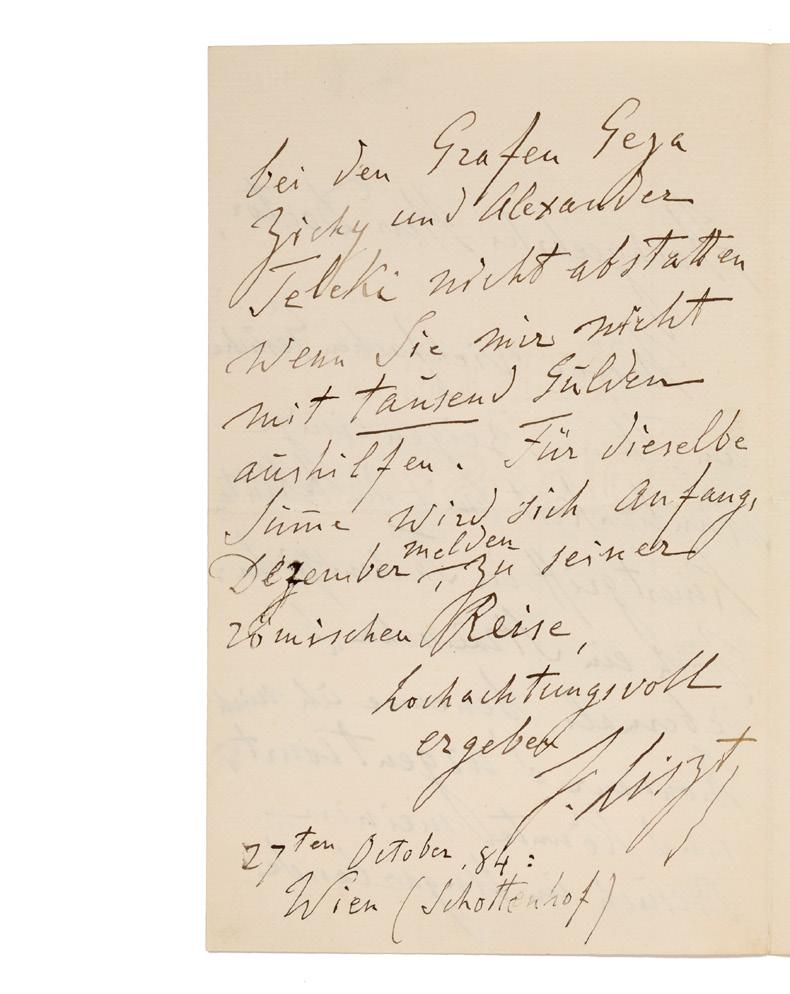 bei den Grafen Geza
Zichy und Alexander
Teleki nicht abstatten
wenn Sie mir nicht
mit tausend Gulden
aushilfen. Für dieselbe
Sum̅e wird sich Anfang,
melden
Dezember, zu seiner
römischen Reise,
hochachtungsvoll
ergeben
F. Liszt
27ten October, 84:
Wien (Schottenhof)